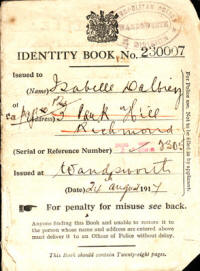 METROPOLITAN POLICE
WANDSWORTH
IDENTITY BOOK No. 230007
Issued to
(Name) Isabelle
of
(Address) Park Hill
Richmond
(Serial or Reference Number)
Issued at Wandsworth
(Date) 24 August 1917
For penalty for misuse see back.
Anyone finding this Book and unable to restore it to
the person whose name and address are entered above
must deliver it to an Officer of Police without delay.
This Book should contain Twenty-eight pages.
For Police use. Not to be filled in by applicants.